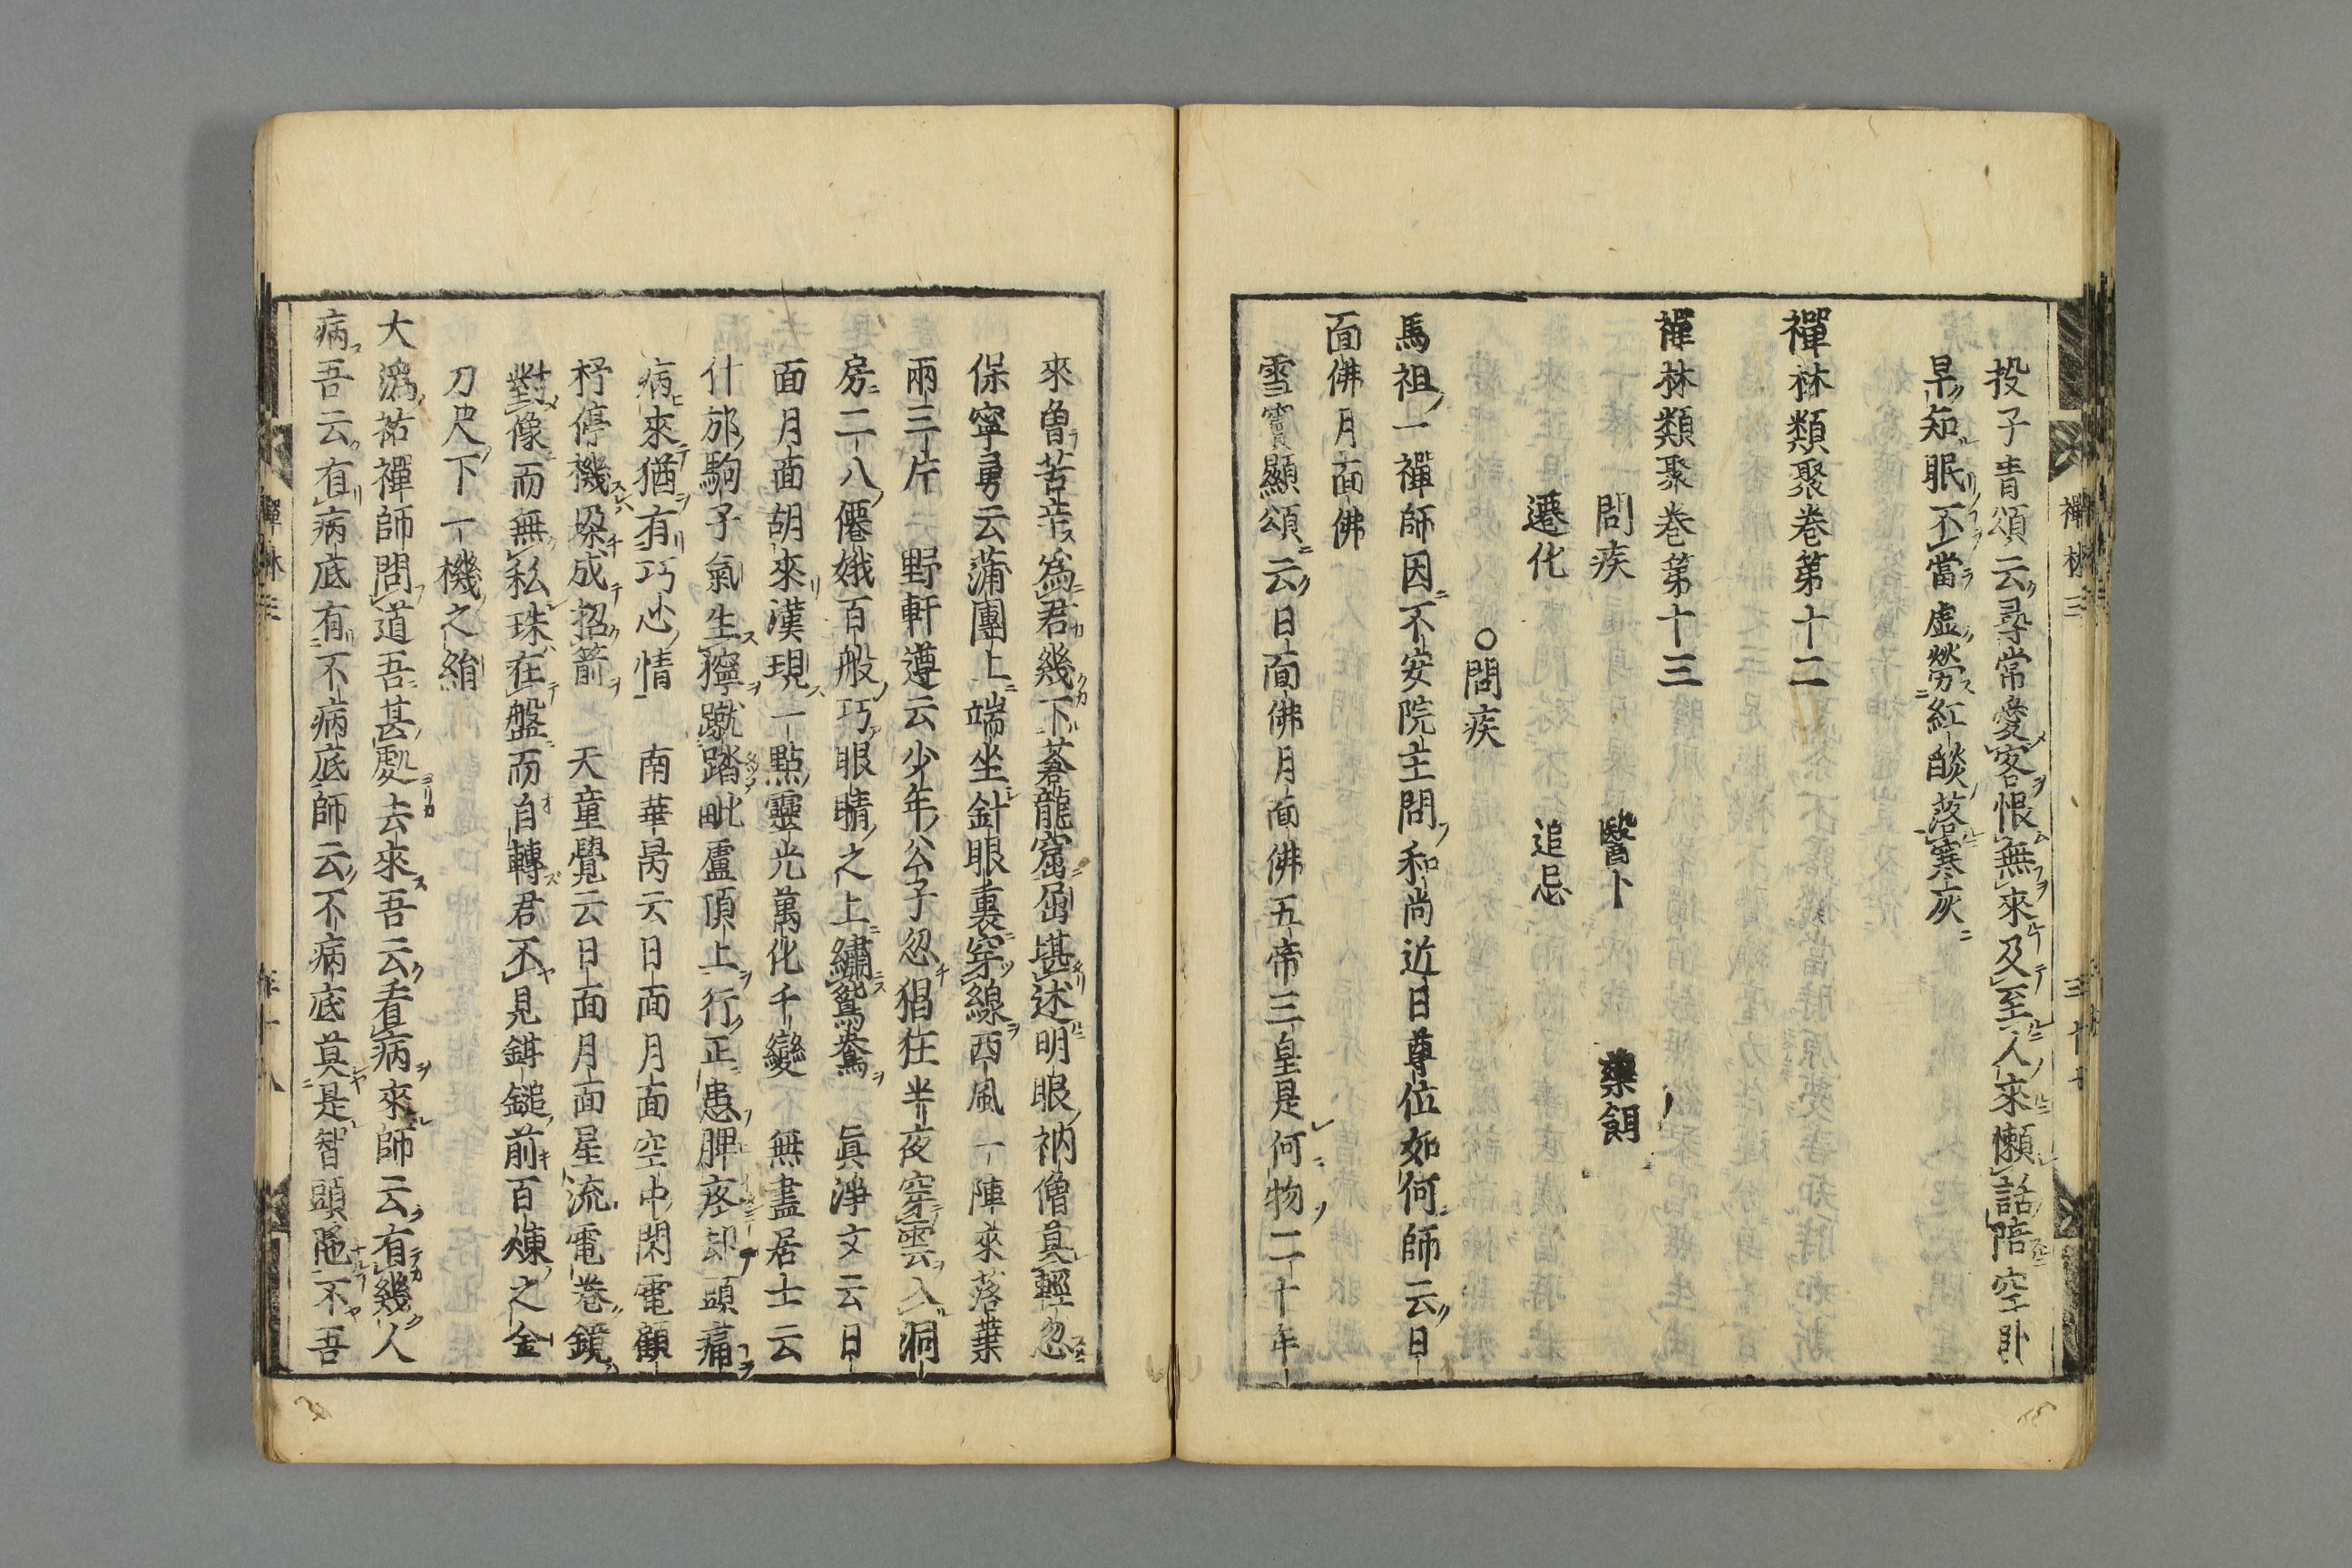 投子青頌云尋常愛客恨無來及至人來懶話陪空臥
早知眠不當虛勞紅燄落寒灰
禪林類聚卷第十二
禪林類聚卷第十三
問疾 醫卜 藥餌
遷化 追忌
○問疾
馬祖一禪師因不安院主問和尚近日尊位如何師云日
面佛月面佛
雪竇顯頌云日面佛月面佛五帝三皇是何物二十年
來曾苦辛爲君幾下蒼龍窟屈堪述明眼衲僧莫輕忽
保寧勇云蒲團上端坐針眼裏穿線西風一陣來落葉
兩三片 野軒遵云少年公子忽猖狂半夜穿雲入洞
房二八僊娥百般巧眼睛之上繡鴛鴦 眞淨文云日
面月面胡來漢現一點靈光萬化千變 無盡居士云
什邡駒子氣生獰蹴踏毗盧頂上行正患脾疼却頭痛
病來猶有巧心情 南華昺云日面月面空中閃電顧
杼停機垜成招箭 天童覺云日面月面星流電卷鏡
對像而無私珠在盤而自轉君不見鉗鎚前百煉之金
刀尺下一機之絹
大溈祐禪師問道吾甚處去來吾云看病來師云有幾人
病吾云有病底有不病底師云不病底莫是智頭陁不吾
禪林三